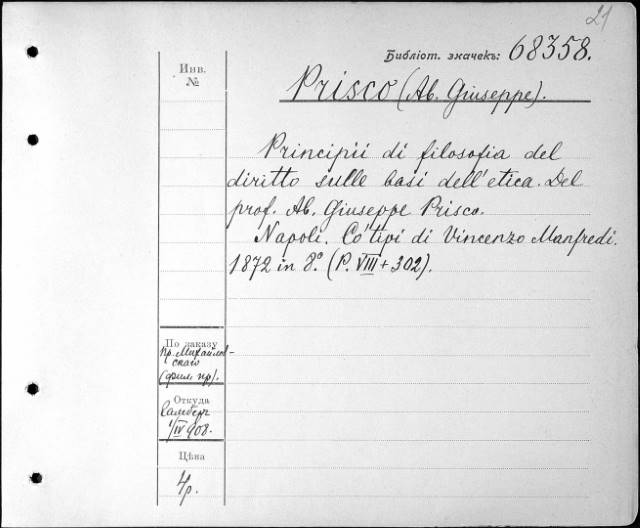 21
Библіот. значекъ: 68358.
Инв.
№
Prisco (Ab. Giuseppe).
Principii di filosofia del
diritto sulle basi dell'etica. Del
prof. Ab. Giuseppe Prisco.
Napoli. Co'tipi di Vincenzo Manfredi.
1872 in 8.° (P. VIII + 302).
По заказу
пр. Михайлов-
скаго
(фил. пр).
Откуда
1/IV 908.
Цѣна
4р.